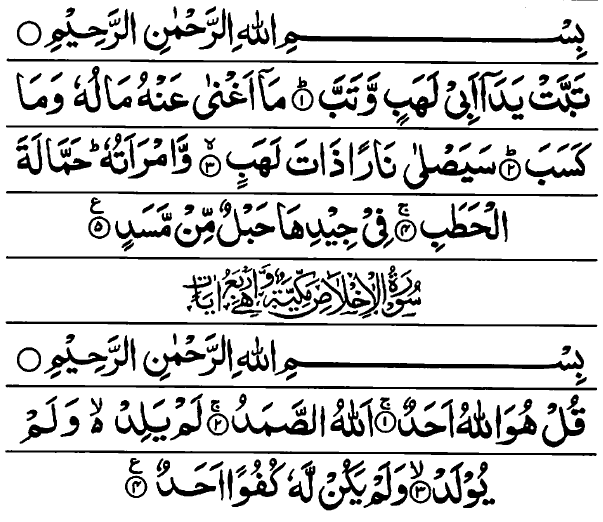 بِسْمِ اللهِ الرَّحْمٰنِ الرَّحِيْمِ ○
تَبَّتْ يَدَآ اَبِيْ لَهَبٍ وَّتَبَّ ؕ﴿۱﴾ مَاۤ اَغْنٰى عَنْهُ مَالُهٗ وَمَا
كَسَبَ ؕ﴿۲﴾ سَيَصْلٰى نَارًا ذَاتَ لَهَبٍ ۙ﴿۳﴾ وَّامْرَاَتُهٗ ؕ حَمَّالَةَ
الْحَطَبِ ۚ﴿۴﴾ فِيْ جِيْدِهَا حَبْلٌ مِّنْ مَّسَدٍ ﴿۵﴾ ع
سُوْرَةُ الْاِخْلَاصِ مَكِّيَّةٌ وَّهِيَ اَرْبَعُ اٰيَاتٍ
بِسْمِ اللهِ الرَّحْمٰنِ الرَّحِيْمِ ○
قُلْ هُوَ اللهُ اَحَدٌ ۚ﴿۱﴾ اَللهُ الصَّمَدُ ۚ﴿۲﴾ لَمْ يَلِدْ ۙ۬ وَلَمْ
يُوْلَدْ ۙ﴿۳﴾ وَلَمْ يَكُنْ لَّهٗ كُفُوًا اَحَدٌ ﴿۴﴾ ع